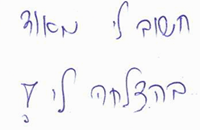 חשוב לי מאוד
בהצלחה לי !